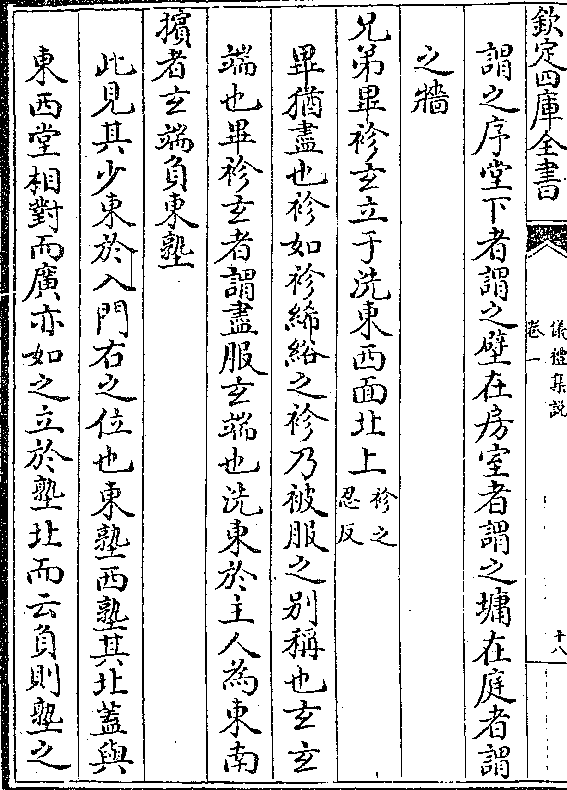 欽定四庫全書
儀禮集説
卷一
十八
謂之序堂下者謂之壁在房室者謂之墉在庭者謂
之牆
兄弟畢袗玄立于洗東西面北上袗之忍反
畢猶盡也袗如袗絺綌之袗乃被服之别稱也玄玄
端也畢袗玄者謂盡服玄端也洗東於主人為東南
擯者玄端負東塾
此見其少東於入門右之位也東塾西塾其北蓋與
東西堂相對而廣亦如之立於塾北而云負則塾之